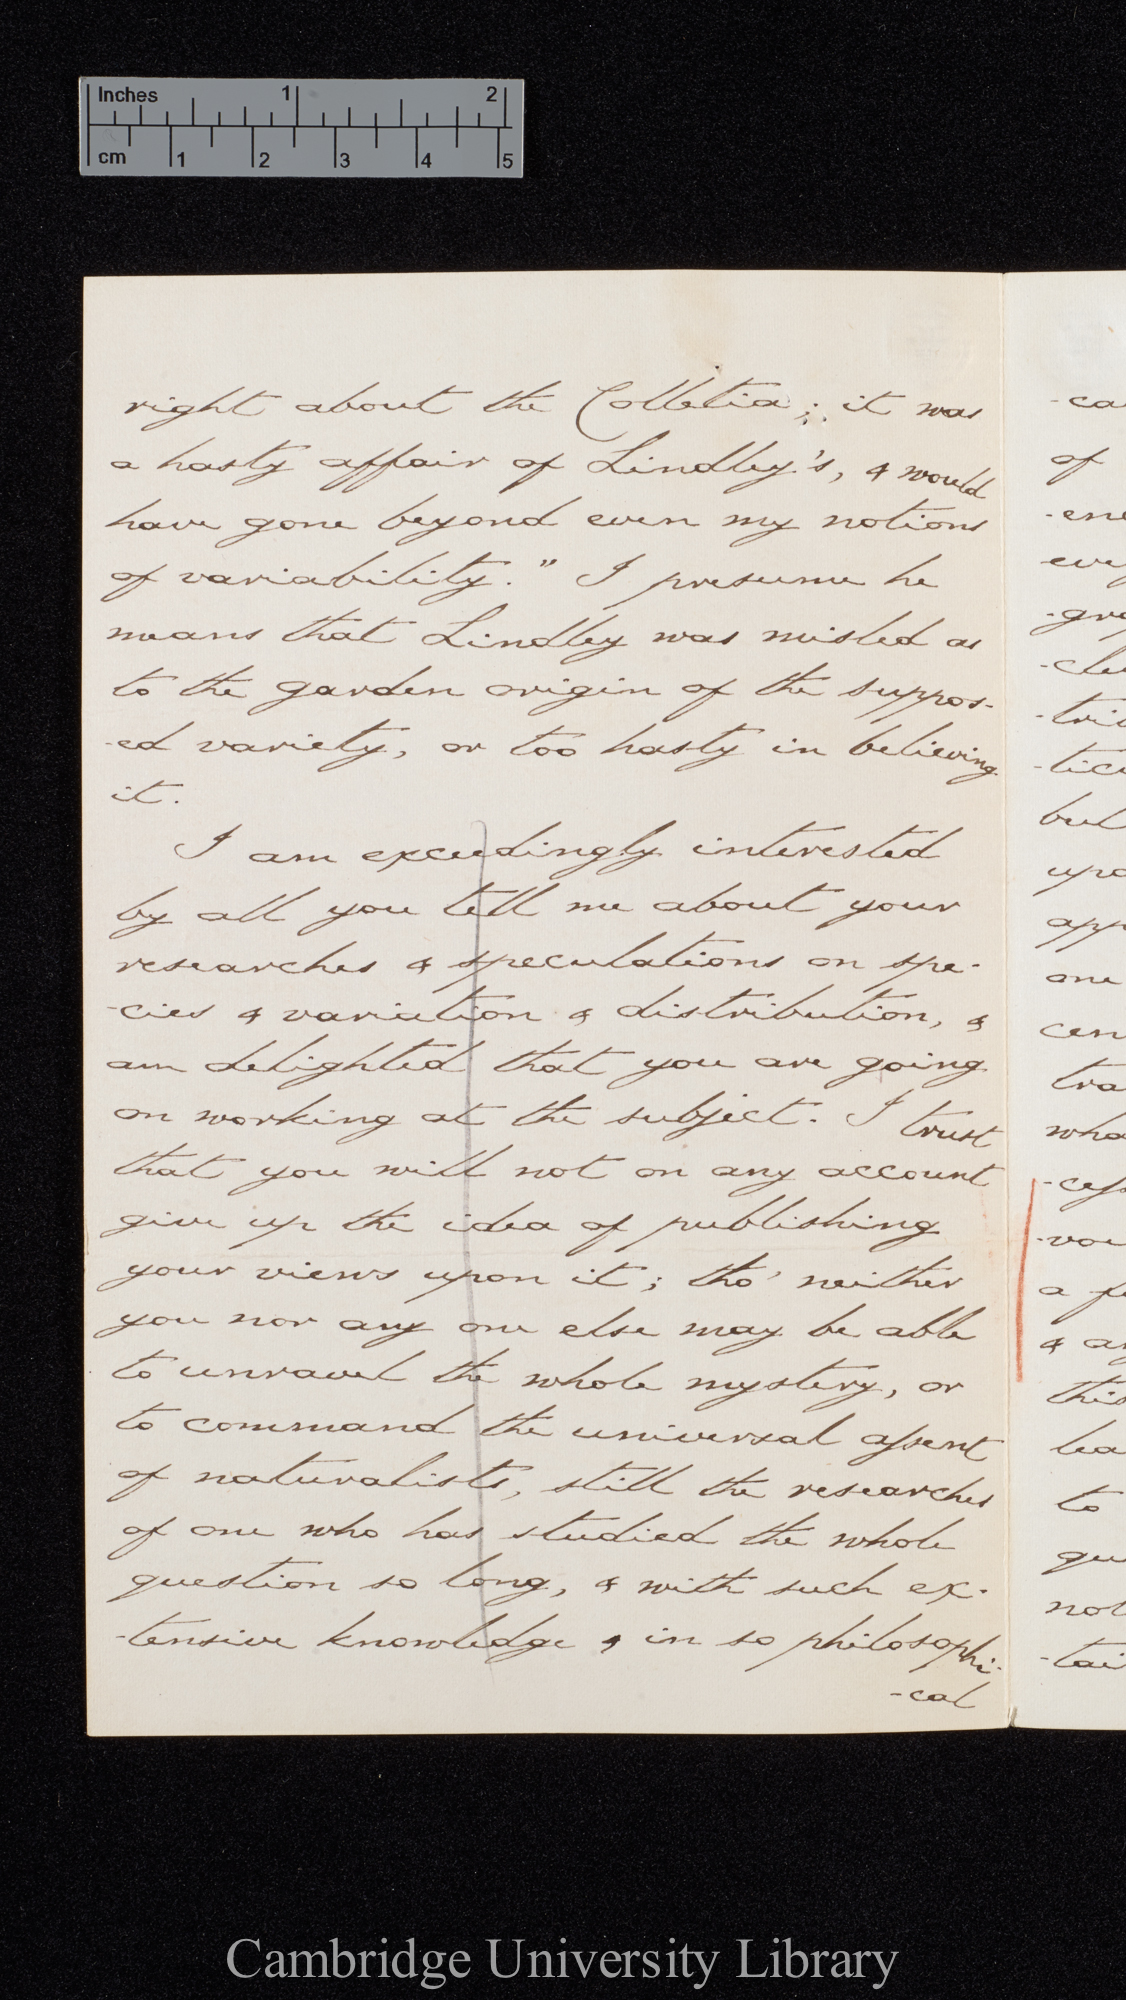 Inches 1 2
cm 1 2 3 4 5
right about the Colletia; it was
a hasty affair of Lindley's, & would
have gone beyond even my notions
of variability." I presume he
means that Lindley was misled as
to the garden origin of the suppos-
-ed variety, or too hasty in believing
it.
I am exceedingly interested
by all you tell me about your
researches & speculations on spe-
-cies & variation & distribution, &
am delighted that you are going
on working at the subject. I trust
that you will not on any account
give up the idea of publishing
your views upon it; tho' neither
you nor any one else may be able
to unravel the whole mystery, or
to command the universal assent
of naturalists, still the researches
of one who has studied the whole
question so long, & with such ex-
-tensive knowledge & in so philosophi-
-cal
-ca
of
-ene
eve
-gre
-cle
-tri
-tice
but
upo
app
one
cen
tra
wha
-ces
-vou
a fe
& an
this
lea
to
que
not
-tai
Cambridge University Library